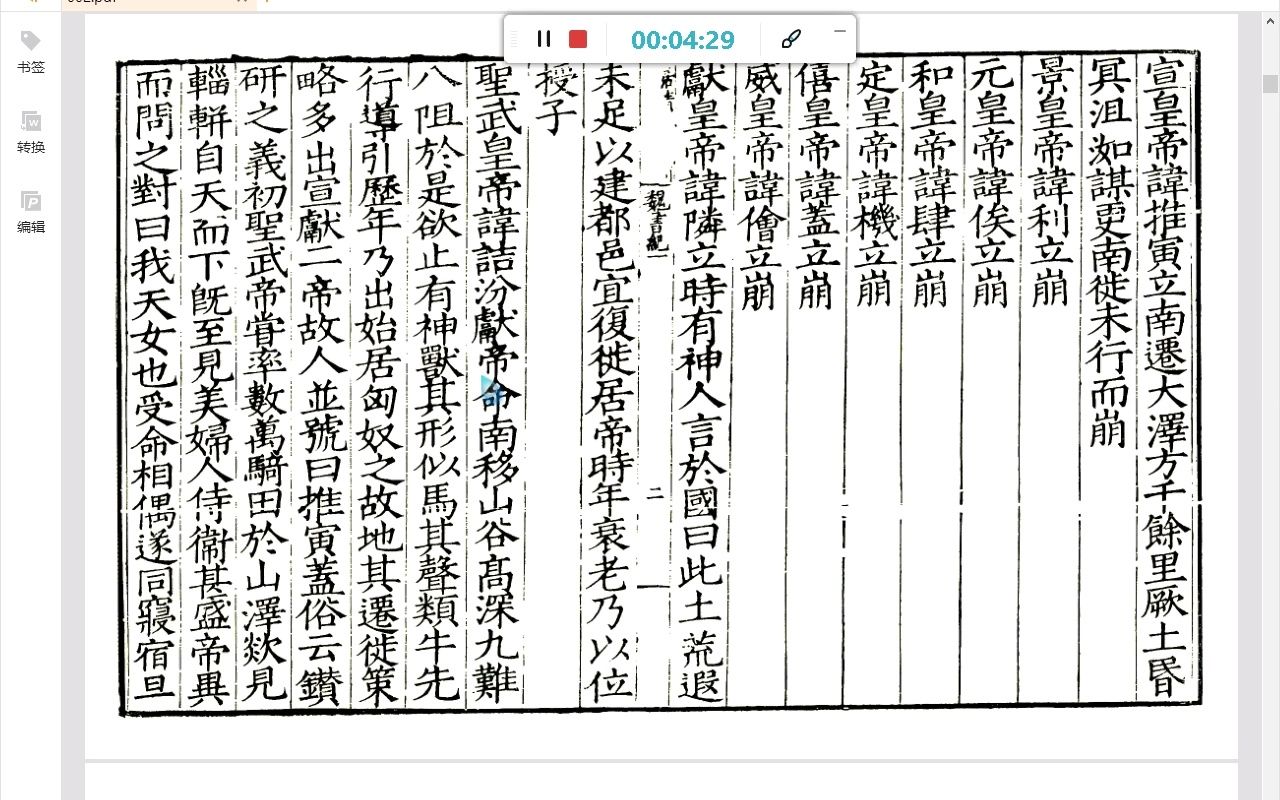 书签
转换
编辑
00:04:29
宣皇帝諱推寅立南遷大澤方千餘里厥土昏
冥沮洳謀更南徙未行而崩
景皇帝諱利立崩
元皇帝諱俟立崩
和皇帝諱肆立崩
定皇帝諱機立崩
僖皇帝諱蓋立崩
威皇帝諱儈立崩
獻皇帝諱隣立時有神人言於國曰此土荒遐
魏書紀一
二
未足以建都邑宜復徙居帝時年衰老乃以位
授子
聖武皇帝諱詰汾獻帝命南移山谷高深九難
八阻於是欲止有神獸其形似馬其聲類牛先
行導引歷年乃出始居匈奴之故地其遷徙策
略多出宣獻二帝故人並號曰推寅蓋俗云鑽
研之義初聖武帝甞率數萬騎田於山澤欻見
輜軿自天而下旣至見美婦人侍衞甚盛帝異
而問之對曰我天女也受命相偶遂同寢宿旦